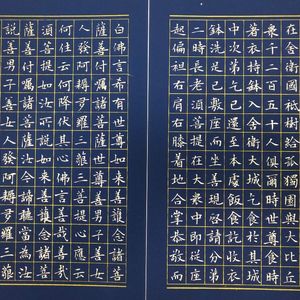 在舍衛國祇樹給孤獨園與大比丘
衆千二百五十人俱爾時世尊食時
著衣持鉢入舍衛大城乞食於其城
中次第乞已還至本處飯食訖收衣
鉢洗足已敷座而坐善現啟請分第
二時長老須菩提在大衆中即從座
起偏袒右肩右膝著地合掌恭敬而
白佛言希有世尊如來善護念諸菩
薩善付囑諸菩薩世尊善男子善女
人發阿耨多羅三藐三菩提心應云
何住云何降伏其心佛言善哉善哉
須菩提如汝所說如來善護念諸菩
薩善付囑諸菩薩汝今諦聽當為汝
說善男子善女人發阿耨多羅三藐